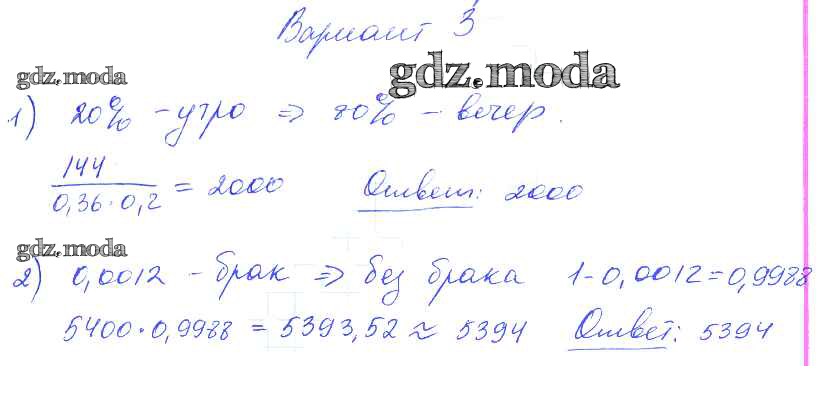 Вариант 3
gdz.moda gdz.moda
1) 20% - утро ⇒ 80% - вечер.
144 / 0,36·0,2 = 2000 Ответ: 2000
gdz.moda
2) 0,0012 - брак ⇒ без брака 1-0,0012=0,9988
5400·0,9988 = 5393,52 ≈ 5394 Ответ: 5394